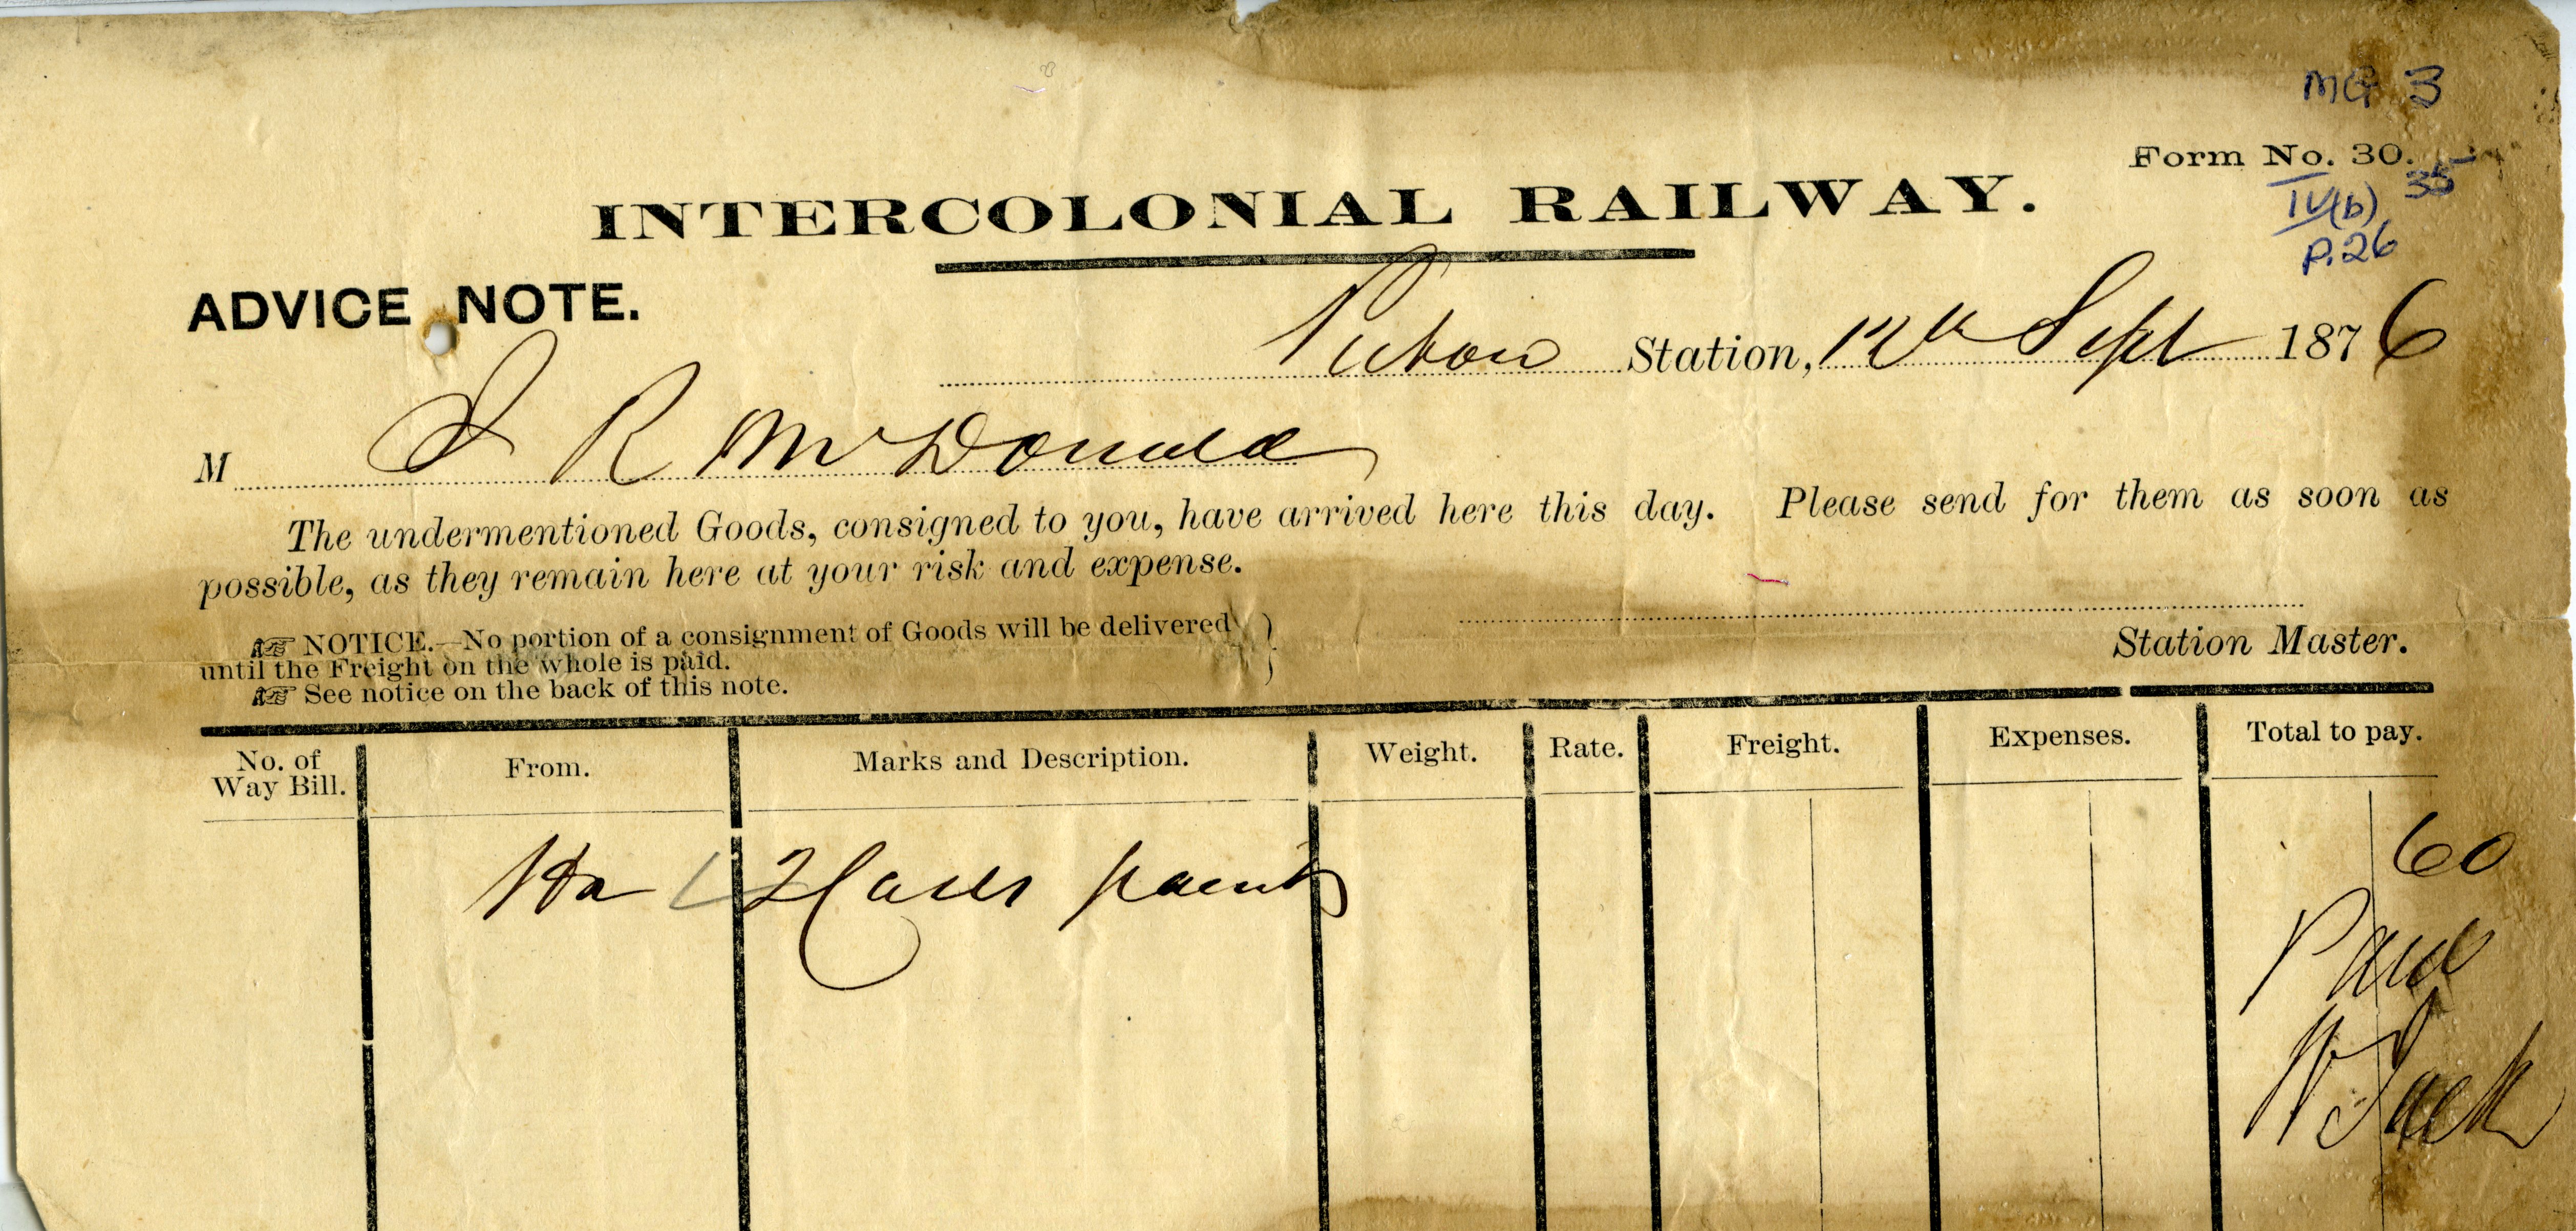 MG 3
Form No. 30.
35
IV(b)
P.26
INTERCOLONIAL RAILWAY.
ADVICE NOTE.
Pictou Station, 12th Sept 1876
M J R McDonald
The undermentioned Goods, consigned to you, have arrived here this day. Please send for them as soon as
possible, as they remain here at your risk and expense.
☞ NOTICE.—No portion of a consignment of Goods will be delivered
until the Freight on the whole is paid.
☞ See notice on the back of this note.
Station Master.
No. of Way Bill. From. Marks and Description. Weight. Rate. Freight. Expenses. Total to pay.
Hx 2 Cases paints 60
Paid
W Jack